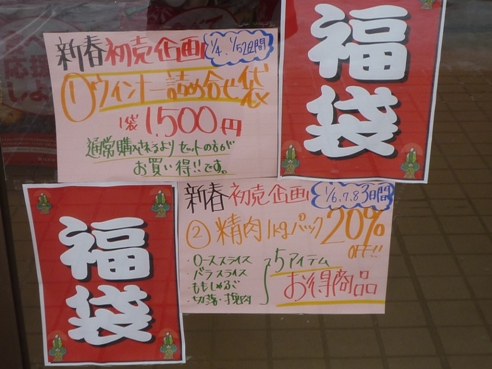 新春初売企画 1/4、1/5 2日間
①ウインナー詰め合せ袋
1袋 1,500円
通常購入されるよりセットのものが
お買い得!!です。
福袋
新春初売企画 1/6.7.8 3日間
②精肉1kgパック20%OFF!!
・ローススライス
・バラスライス
・ももしゃぶ
・切落・挽肉
5アイテム
お得商品
福袋
応援
しよ